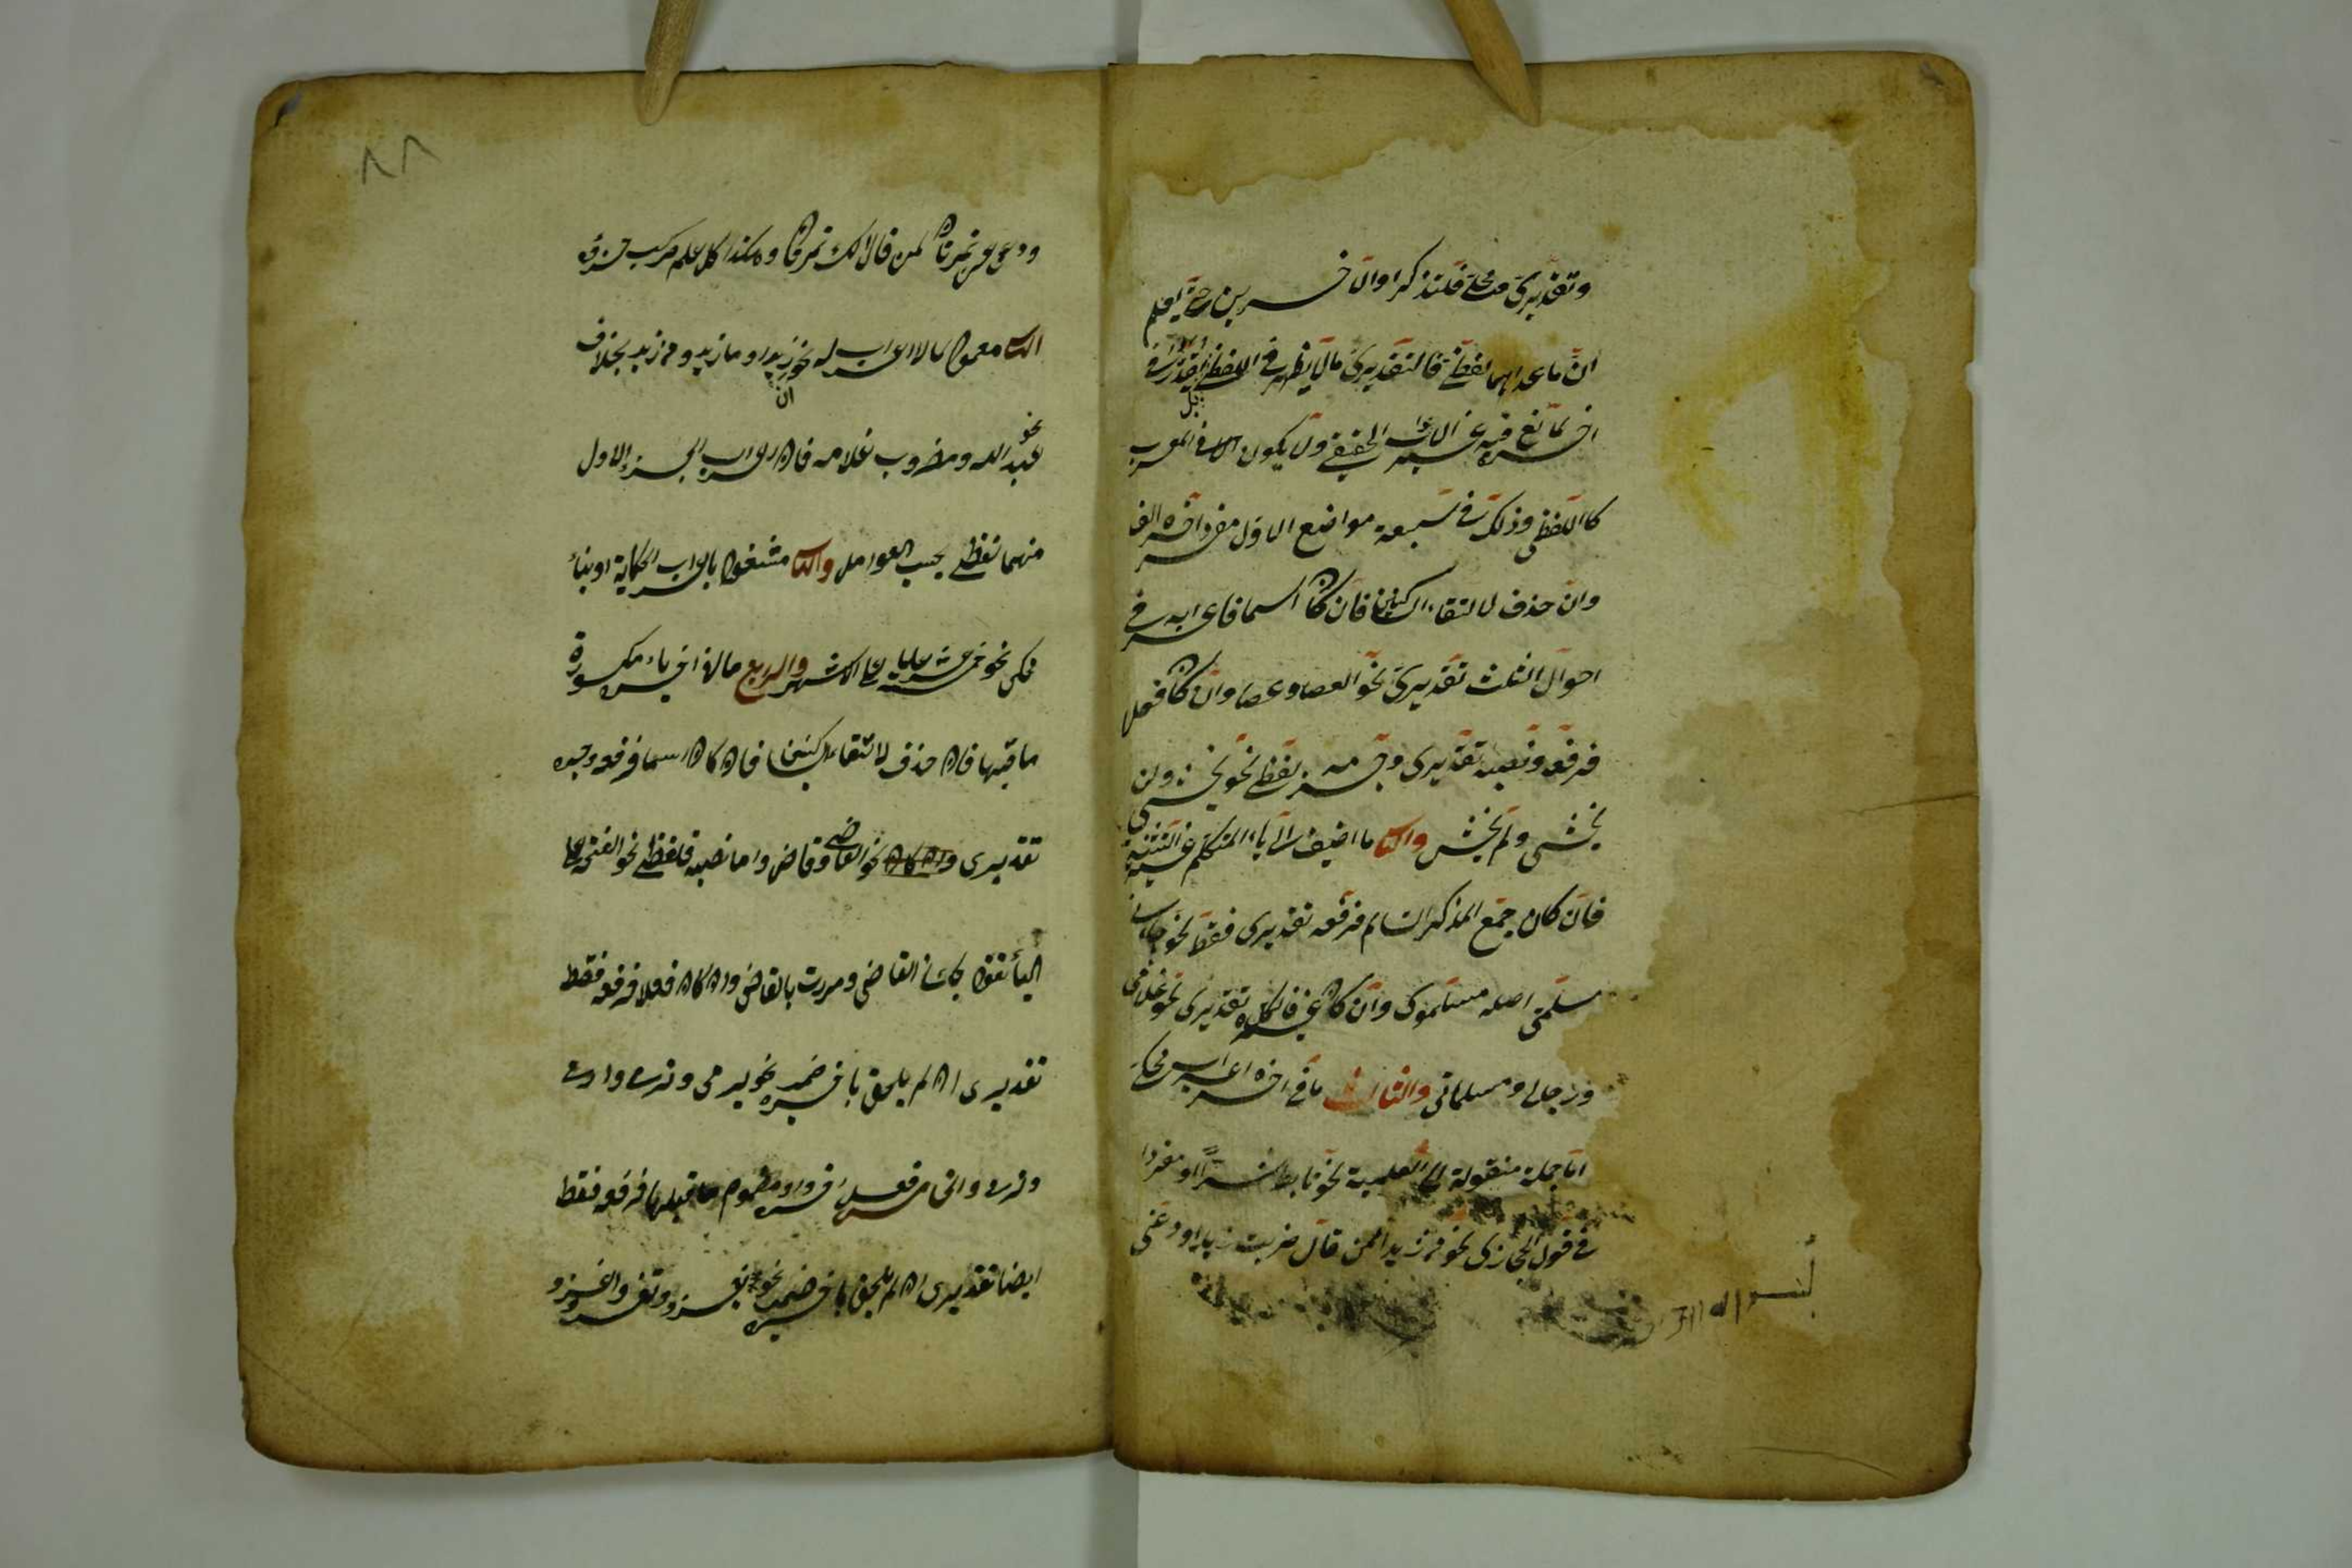 وتقديري ومحلي فلنذكر اوالآخرين حتى يعلم
ان ما عداهما لفظي فالتقديري ما لا يظهر في اللفظ بل يقدر في
اخره لمانع فيه غير الاعراب الحقيقي ولا يكون الا في المعرب
كاللفظي وذلك في سبعة مواضع الاول مفرد اخره الف
وان حذف لالتقاء الساكنين فان كان اسما فاعرابه في
احوال الثلث تقديري نحو العصا وعصا وان كان فعل
فرفعه ونصبه تقديري وجزمه لفظي نحو يخشى ولن
يخشى ولم يخش والثاني ما اضيف الى ياء المتكلم غير التثنية
فان كان جمع المذكر السالم فرفعه تقديري فقط نحو جاءني
مسلمي اصله مسلموي وان كان غيره فالكل تقديري نحو غلامي
ورجالي ومسلماتي والثالث ما في اخره اعراب محكي
اما جملة منقولة الى العلمية نحو تابط شرا او مفردا
في قول الحجازي نحو من زيدا لمن قال ضربت زيدا ودعني
بسم الله الرحمن
٨٨
ودعني عن تمرتان لمن قال لك تمرتان وهكذا كل علم مركب جزؤه
الثاني معمول لا اعراب له نحو ان زيدا وما زيد ومن زيد بخلاف
نحو عبد الله ومضروب غلامه فان اعراب الجزء الاول
منهما لفظي بحسب العوامل والثاني مشغول باعراب الحكاية او بناء
محكي نحو خمسة عشر علما على الاشهر والرابع ما في اخره ياء مكسورة
ما قبلها فان حذف لالتقاء الساكنين فان كان اسما فرفعه وجره
تقديري وان كان نحو القاضي وقاض واما نصبه فلفظي نحو الفتى على
الياء تقول جاءني القاضي ومررت بالقاضي وان كان فعلا فرفعه فقط
تقديري ان لم يلحق باخره ضمير نحو يرمي وترمي وارمي
ونرمي والخامس فعل اخره واو مضموم ما قبلها فرفعه فقط
ايضا تقديري ان لم يلحق باخره ضمير نحو يغزو وتغزو واغزو